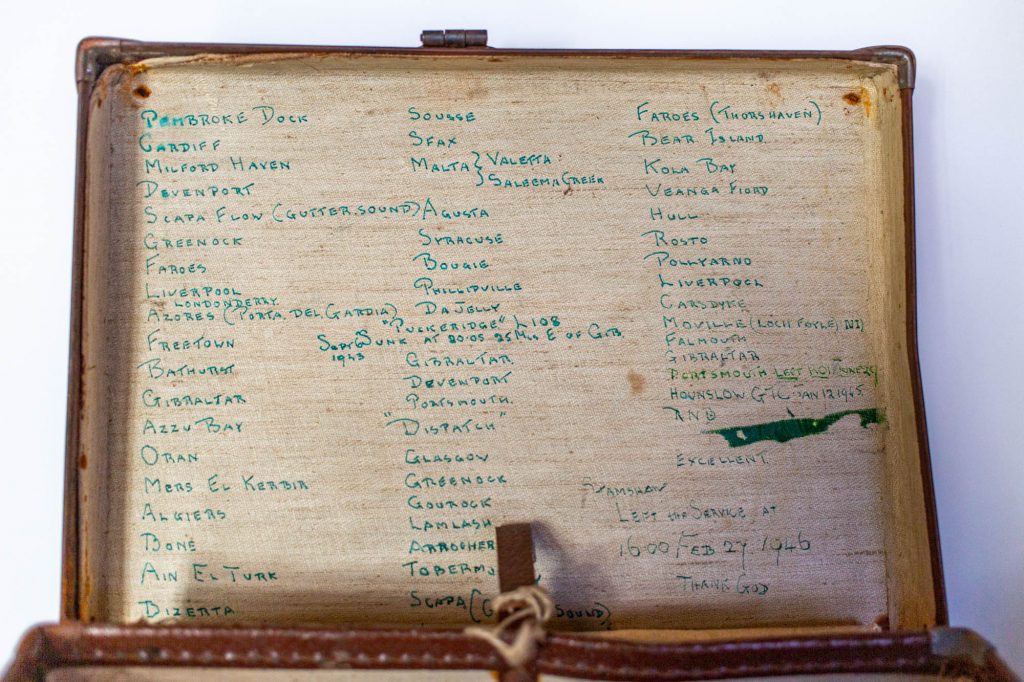 PEMBROKE DOCK
CARDIFF
MILFORD HAVEN
DEVENPORT
SCAPA FLOW (GUTTER.SOUND)
GREENOCK
FAROES
LIVERPOOL
LONDONDERRY
AZORES (PORTA. DEL GARDIA)
FREETOWN
BATHURST
GIBRALTAR
AZZU BAY
ORAN
MERS EL KERBIR
ALGIERS
BONE
AIN EL TURK
BIZERTA
SOUSSE
SFAX
MALTA } VALETTA.
} SALEEMA CREEK
AGUSTA
SYRACUSE
BOUGIE
PHILLIPVILLE
DA JELLY
"PUCKERIDGE" L108
SEPT 6 SUNK AT 20.05. 25 MLS E OF GIB.
1943
GIBRALTAR.
DEVENPORT
PORTSMOUTH.
"DISPATCH"
GLASGOW
GREENOCK
GOUROCK
LAMLASH
ARROCHER
SCAPA
SOUND)
FAROES (THORSHAVEN)
BEAR ISLAND.
KOLA BAY
VEANGA FIORD
HULL
ROSTO
POLLYARNO
LIVERPOOL
CARSDYKE
MOVILLE (LOCH FOYLE, NI)
FALMOUTH
GIBRALTAR
PORTSMOUTH LEFT
HOUNSLOW GTC. JAN 12 1945
RNB
EXCELLENT.
LEFT THE SERVICE AT
1600 FEB 27 1946
THANK GOD